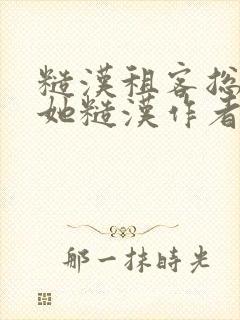 糙漢租客總
她糙漢作者
那一抹時光